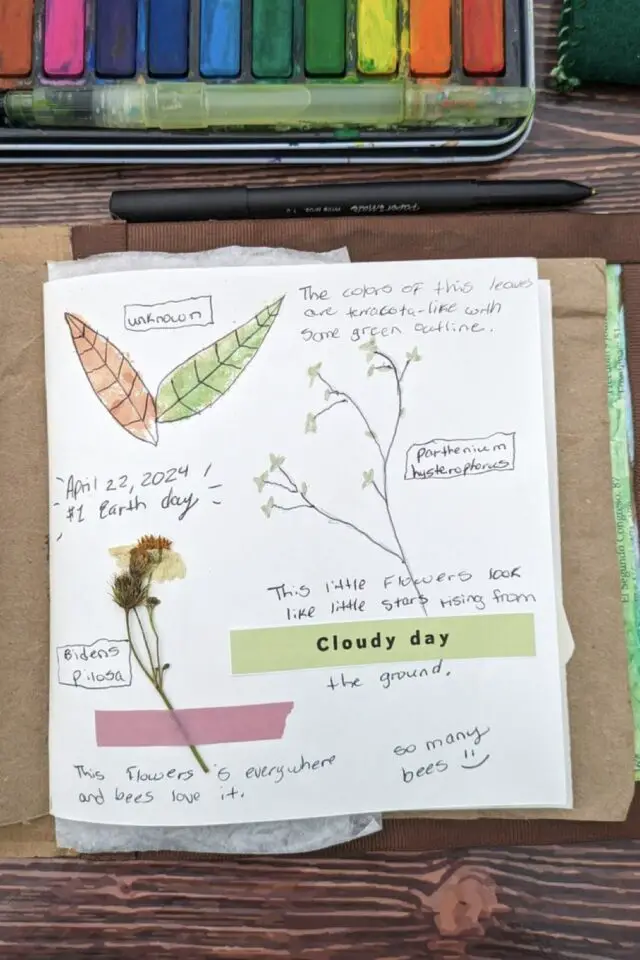 unknown
The colors of this leaves
are terracota-like with
some green outline.
parthenium
hysterophorus
April 22, 2024
#1 Earth day
This little Flowers look
like little stars rising from
Cloudy day
the ground.
Bidens
pilosa
so many
bees
This Flowers is everywhere
and bees love it.
El Segundo Congreso, 87